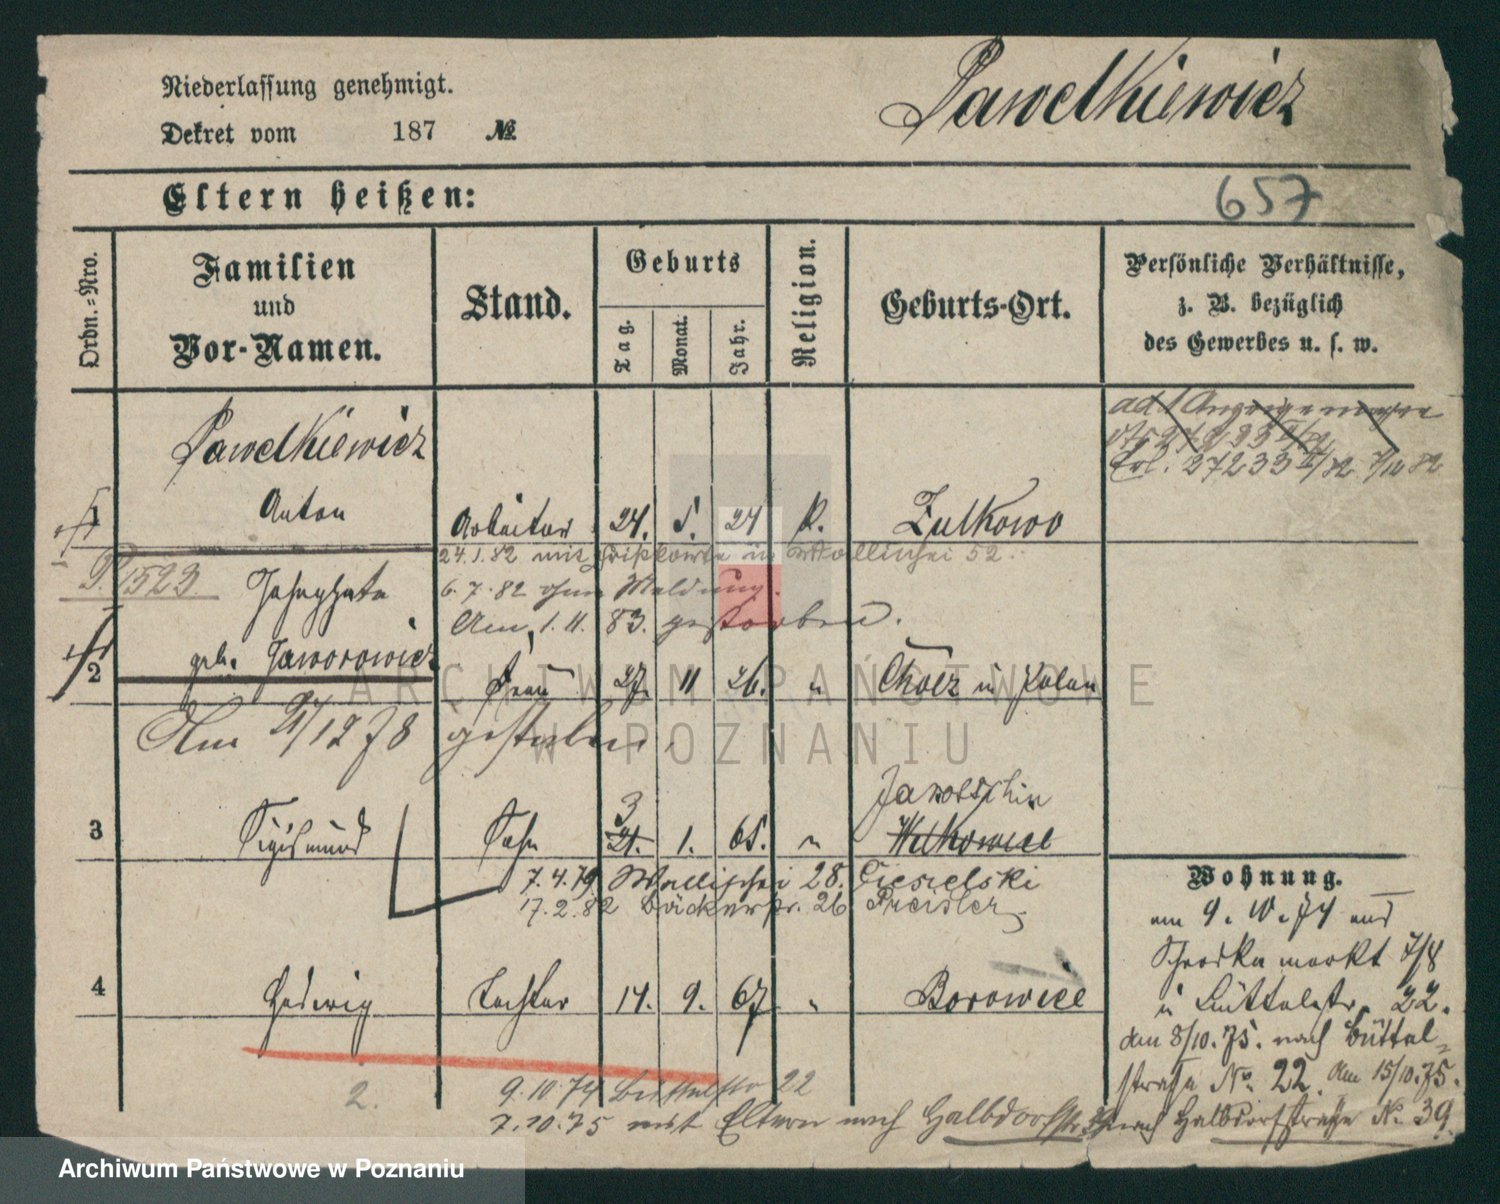 Niederlassung genehmigt.
Dekret vom 187 №
Pawelkiewicz
Eltern heißen:
657
Ordn.=Nro.
Familien
und
Vor-Namen.
Stand.
Geburts
Tag.
Monat.
Jahr.
Religion.
Geburts-Ort.
Persönliche Verhältnisse,
z. B. bezüglich
des Gewerbes u. s. w.
Pawelkiewicz
1 Anton Arbeiter 24. 5. 24 k. Zulkowo
24.1.82 mit in Wallischei 52.
P. 1523
6.7.82 ohne Meldung.
Am 1.11.83. gestorben.
geb. Jaworowicz
2 Frau 27. 11 26. " Chocz in Polen
Am 21/12 78 gestorben.
Jarotschin
3 Sigismund Sohn 3 21. 1. 65. " Wilkowice
7.4.79 Wallischei 28. Ciesielski
17.2.82 Bäckerstr. 26 Preisler
4 Hedwig Tochter 14. 9. 67 " Borowice
2.
9.10.74 Büttelstr 22
7.10.75 mit Eltern nach Halbdorfstr. 39
ad 1 Anzeige wegen
Erl. 27233 II/82 7/12 82
Wohnung.
am 9. 10. 74 aus
Schrodka markt 7/8
in Büttelstr. 22.
den 8/10. 75. nach Büttel=
straße No. 22. Am 15/10.75.
nach Halbdorfstraße № 39.
ARCHIWUM PAŃSTWOWE
W POZNANIU
Archiwum Państwowe w Poznaniu